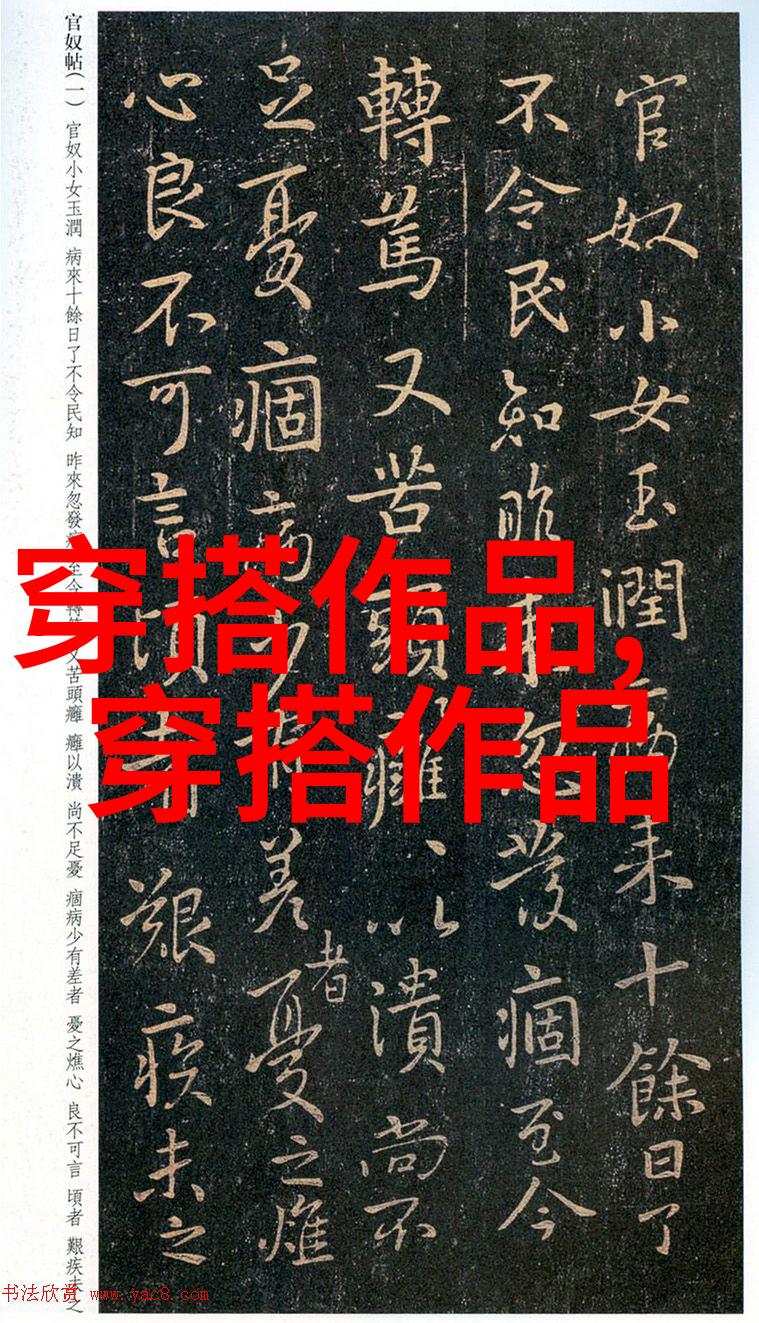 官奴小女玉潤病来十餘日了
不令民知昨来忽發痼至今
轉篤又苦頭癰、以潰尚不
足憂痼病少有差者憂之燋
心良不可言頃者艱疾未之
官奴帖(一) 官奴小女玉潤 病來十餘日了不令民知 昨來忽發痼至今轉篤又苦頭癰 癰以潰 尚不足憂 痼病少有差者 憂之燋心 良不可言 頃者 艱疾未之
穿搭作品,
穿搭作品
书法欣赏 www.yac8.com